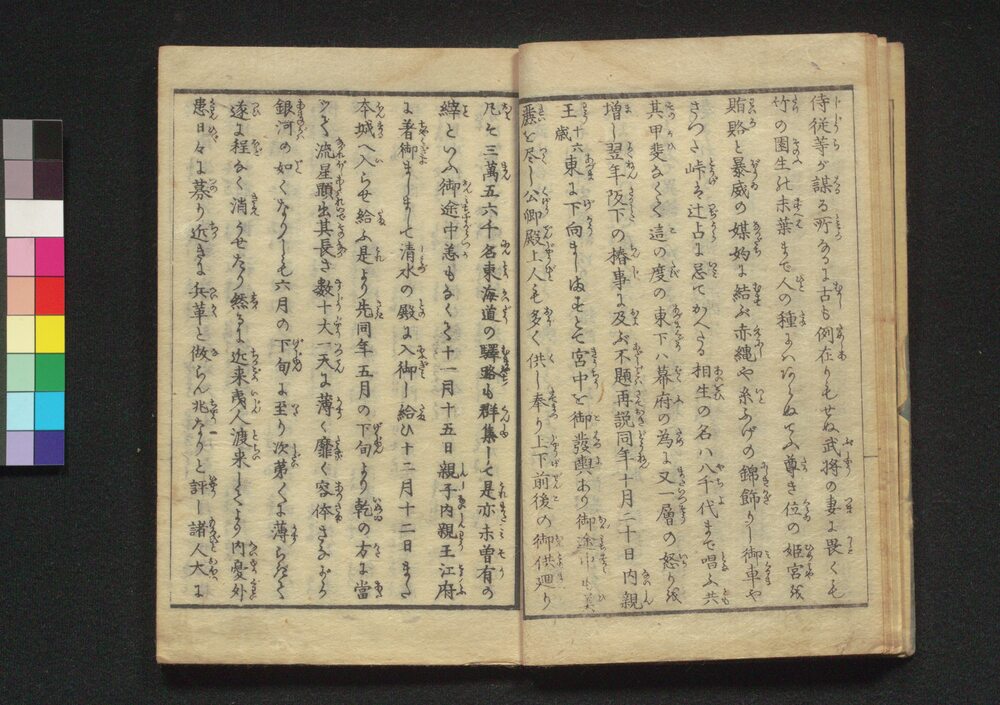 侍従等が謀る所なるよ古も例在りもせぬ武将の妻に畏くも
竹の園生の末葉まで人の種にはあらぬてふ尊き位の姫宮を
賄賂と暴威の媒妁に結ぶ赤縄や糸ふげの錦飾りし御車や
さつた峠を辻占に忌てかへたる相生の名ハ八千代まで唱ふ共
其甲斐なくく這の度の東下ハ幕府の為に又一層の怒りを
増し翌年阪下の椿事に及ぶ不題再説同年十月二十日内親
王十六歳東に下向ましますとて宮中を御發輿あり御途中
麗を尽し公卿殿上人も多く供し奉り上下前後の御供廻り
凡そ三萬五六千名東海道の驛路も群集して是亦未曽有の
縡といふ御途中恙もなくて十一月十五日親子内親王江府
に着御ましまして清水の殿に入御し給ひ十二月十二日また
本城へ入らせ給ふ是より先同年五月の下旬より乾の方に當
りて流星顕出其長さ数十丈一天に薄く靡く容体さながら
銀河の如くなりしも六月の下旬に至り次第くに薄らぎて
遂に程なく消うせたり然るに近来夷人渡来してより内憂外
患日々に募り近きに兵革と做らん兆なりと評し諸人大に